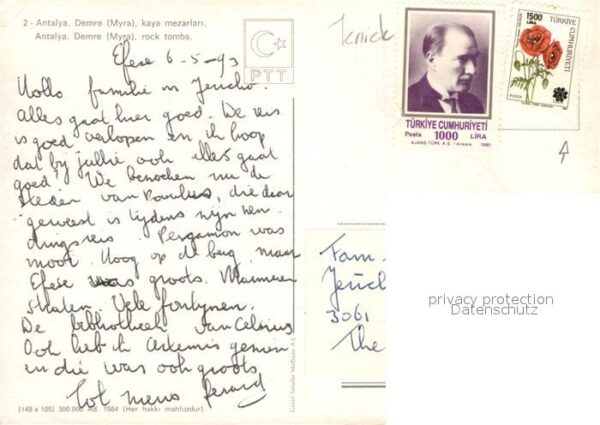 2 - Antalya, Demre (Myra), kaya mezarları.
Antalya, Demre (Myra), rock tombs.
PTT
Efese 6-5-93
Hallo familie in Jericho.
Alles gaat hier goed. De reis
is goed verlopen en ik hoop
dat by jullie ook alles gaat
goed. We bezoeken nu de
steden van Paulus, die daar
geweest is tijdens zijn zen
dingsreis. Pergamon was
mooi. Hoog op de berg, maar
Efese was groots. Marmeren
straten. Vele fonteynen.
De bibliotheek van Celsius
Ook heb ik Artemis gezien
en die was ook groots
Tot
[148 x 105] 500.000 Ad. 1984 (Her hakkı mahfuzdur)
TÜRKİYE CUMHURİYETİ
Posta 1000 LİRA
AJANS-TÜRK A.Ş. - Ankara 1990
1500 LİRA
TÜRKİYE CUMHURİYETİ
A
Fam.
Jerich
3061
The
privacy protection
Datenschutz